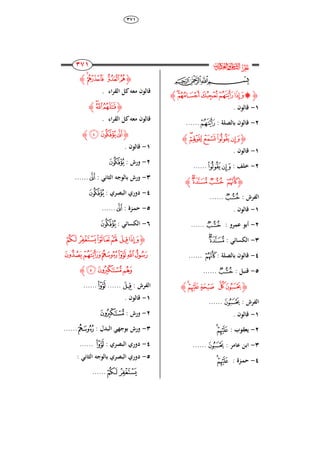 ٣٧١
﴿ ۞ وَإِذَا رَأَيْتَهُمْ تُعْجِبُكَ أَجْسَامُهُمْ ﴾
١- قالون .
٢- قالون بالصلة : رَأَيْتَهُمُ ......
﴿ وَإِن يَقُولُوا تَسْمَعْ لِقَوْلِهِمْ ﴾
١- قالون .
٢- خلف : وَإِن يَقُولُوا ......
﴿ كَأَنَّهُمْ خُشُبٌ مُّسَنَّدَةٌ ﴾
الفرش : خُشُبٌ ......
١- قالون .
٢- أبو عمرو : خُشْبٌ ......
٣- الكسائي : مُّسَنَّدَةٌ ......
٤- قالون بالصلة : كَأَنَّهُمُ ......
٥- قنبل : خُشْبٌ ......
﴿ يَحْسَبُونَ كُلَّ صَيْحَةٍ عَلَيْهِمْ ﴾
الفرش : يَحْسَبُونَ ......
١- قالون .
٢- يعقوب : عَلَيْهُمْ
٣- ابن عامر : يَحْسَبُونَ ......
٤- حمزة : عَلَيْهُمْ
﴿ هُمُ الْعَدُوُّ فَاحْذَرْهُمْ ﴾
قالون معه كل القراء .
﴿ قَاتَلَهُمُ اللَّهُ ﴾
قالون معه كل القراء .
﴿ أَنَّى يُؤْفَكُونَ ٤ ﴾
١- قالون .
٢- ورش : يُوفَكُونَ
٣- ورش بالوجه الثاني : أَنَّى ......
٤- دوري البصري : يُؤْفَكُونَ
٥- حمزة : أَنَّى ......
٦- الكسائي : يُؤْفَكُونَ
﴿ وَإِذَا قِيلَ لَهُمْ تَعَالَوْا يَسْتَغْفِرْ لَكُمْ
رَسُولُ اللَّهِ لَوَّوْا رُءُوسَهُمْ وَرَأَيْتَهُمْ يَصُدُّونَ
وَهُم مُّسْتَكْبِرُونَ ٥ ﴾
الفرش : قِيلَ ...... لَوَّوْا ......
١- قالون .
٢- ورش : مُّسْتَكْبِرُونَ
٣- ورش بوجهي البدل : رُءُوسَهُمْ ......
٤- دوري البصري : لَوَّوْا ......
٥- دوري البصري بالوجه الثاني :
يَسْتَغْفِرْ لَكُمْ ......